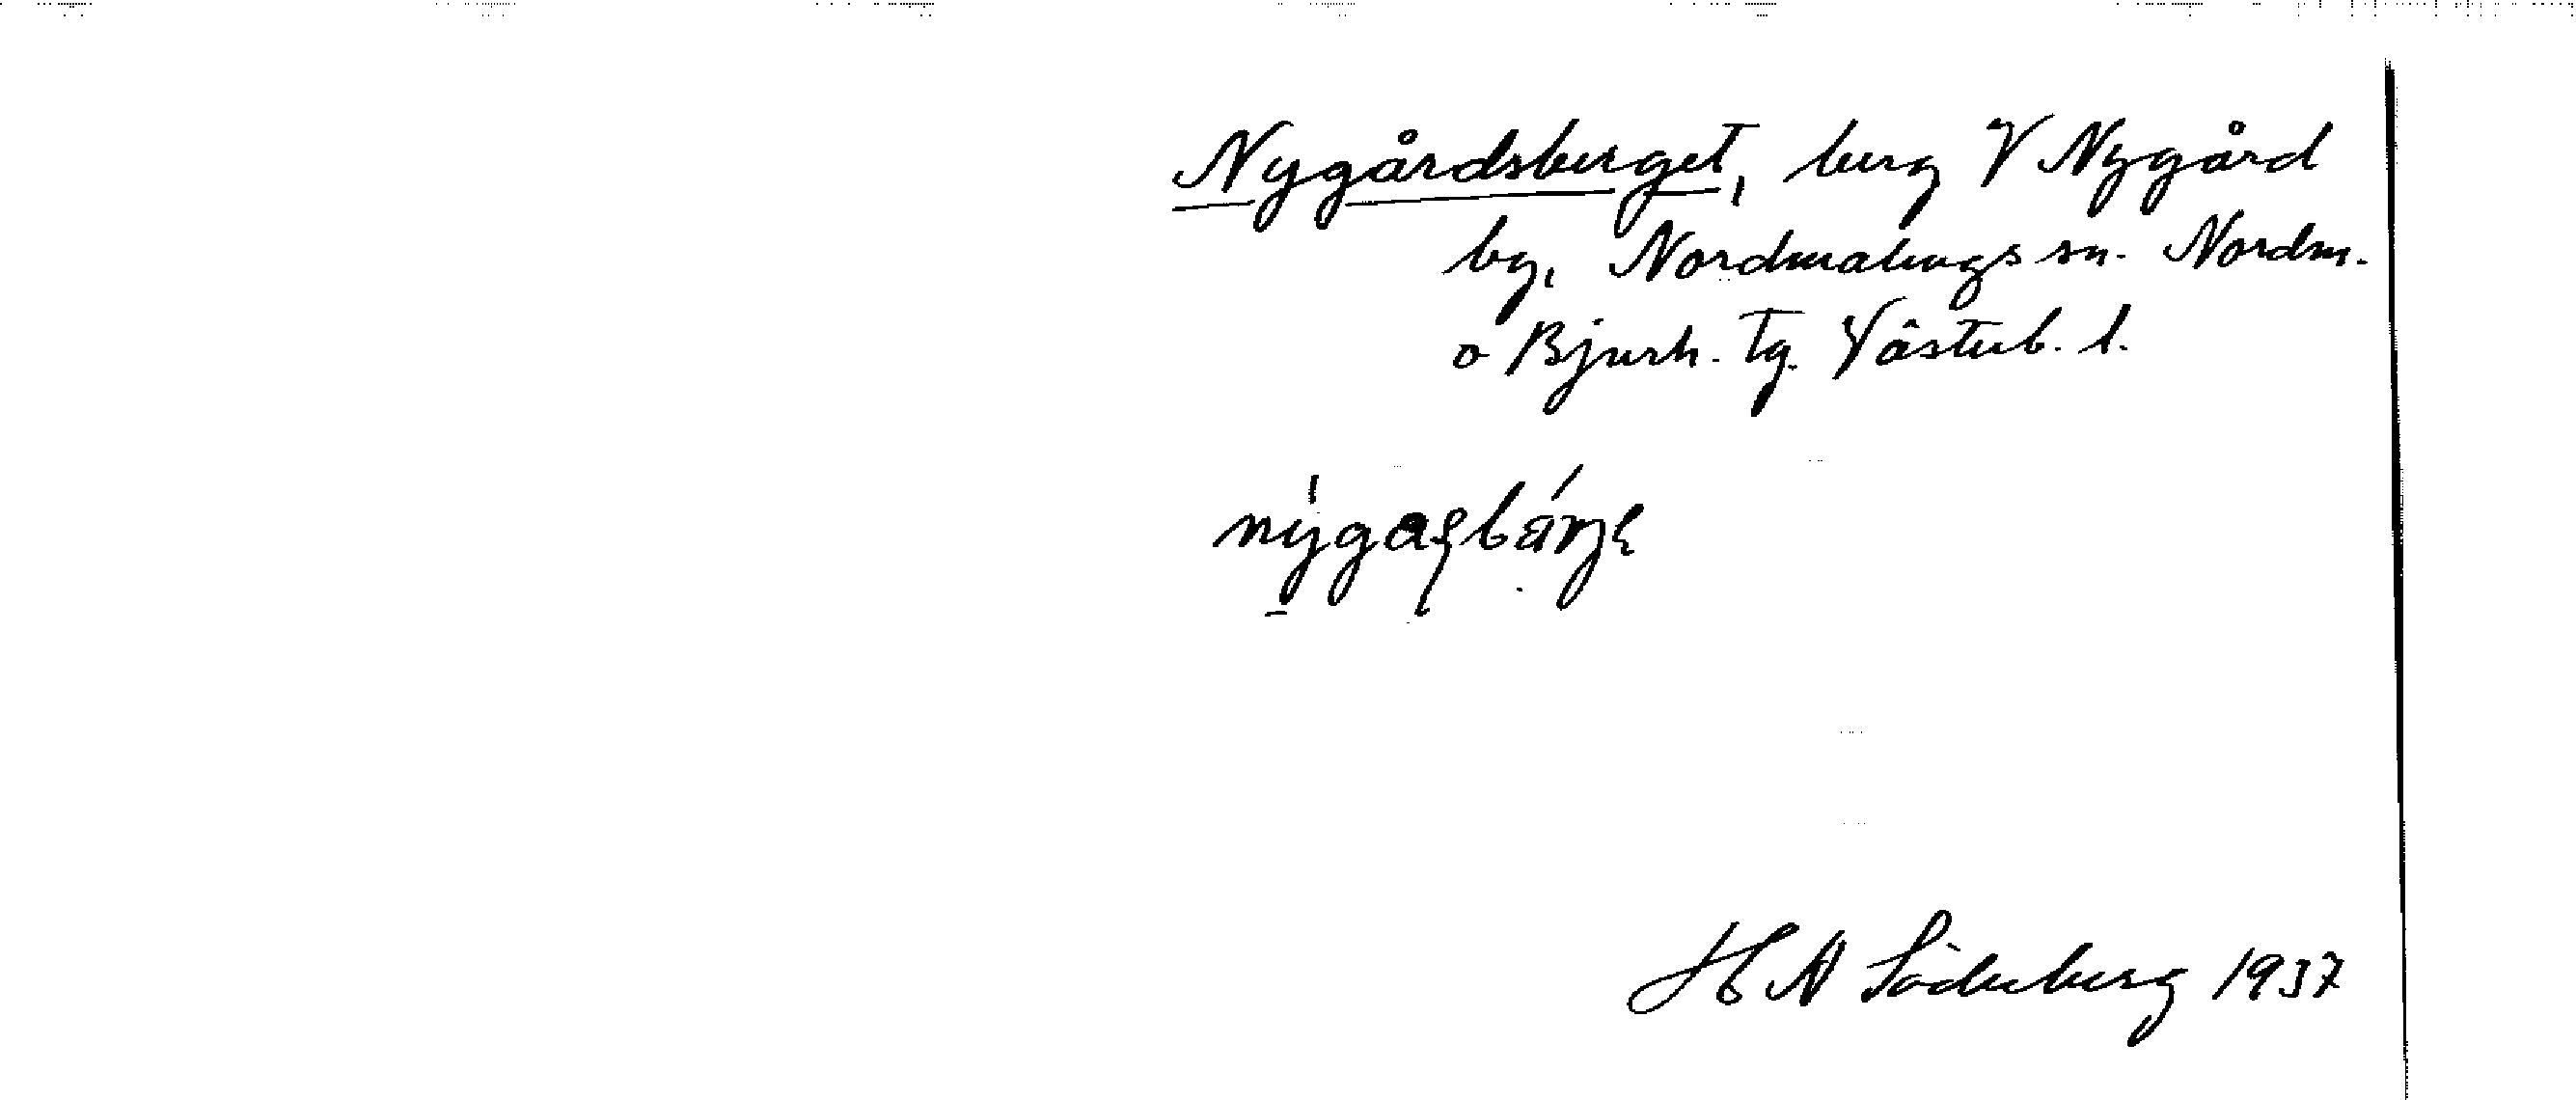 Nygårdsberget, berg V Nygård
by, Nordmalings sn. Nordm.
o Bjurh. Tg. Västerb. l.
nýgaʂbárjɛ
H A Söderberg 1937